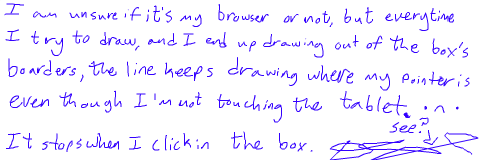 I am unsure if it's my browser or not, but everytime
I try to draw, and I end up drawing out of the box's
boarders, the line keeps drawing where my pointer is
even though I'm not touching the tablet. . n .
see?
It stops when I click in the box.